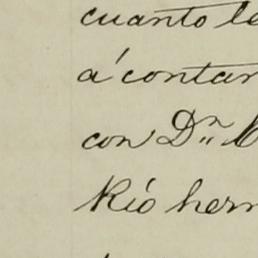 cuanto le
á contar
con Dⁿ.
Rió her